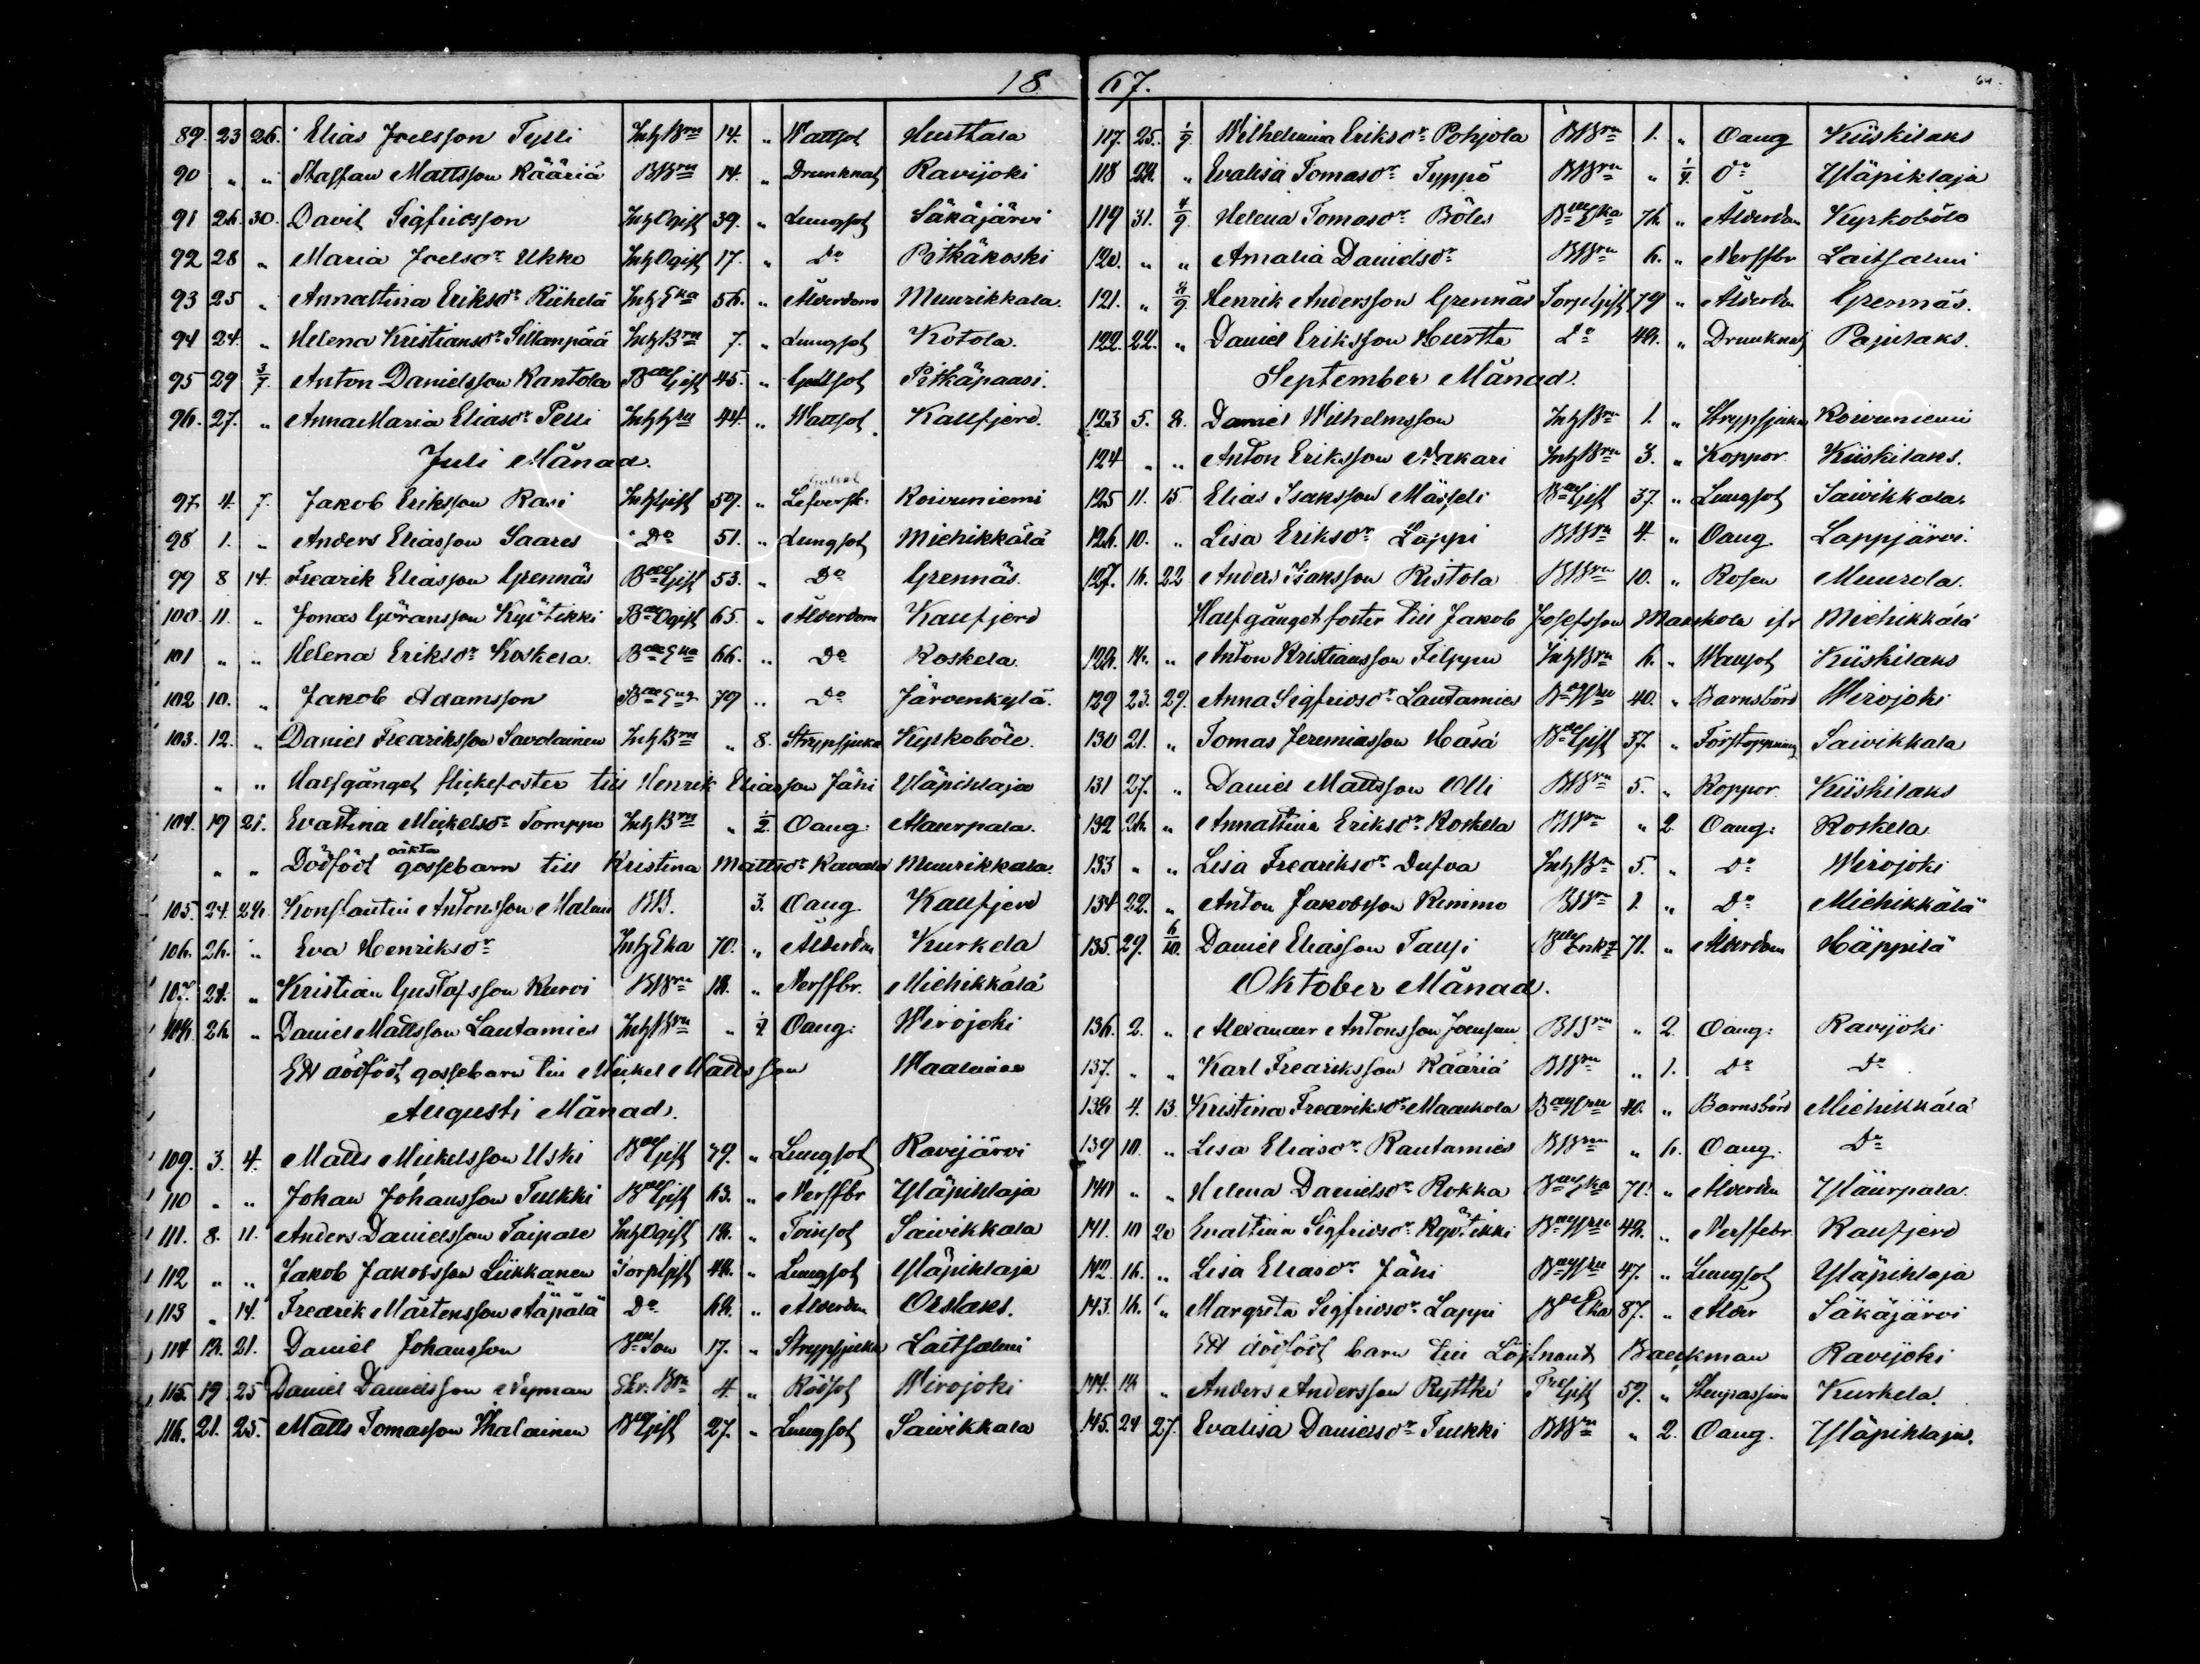 18 67.
64.
89. 23 26. Elias Joelsson Tylli Inh Brn 14. " Wattsot Hurttala
90 " " Staffan Mattsson Kääriä BBrn 14. " Drunknat Ravijoki
91 26. 30. David Sigfridsson Inh Ogift 39. " Lungsot Säkäjärvi
92 28 " Maria Joelsdr Ukko Inh Ogift 17. " Do Pitkäkoski
93 25 " Annastina Eriksdr Riihelä Inh Eka 56. " Ålderdom Muurikkala.
94 24. " Helena Kristiansdr Sillanpää Inh Brn 7. " Lungsot Kotola.
95 29 3/7. Anton Danielsson Rantola Bde Gift 45. " Gullsot Pitkäpaasi.
96. 27. " Anna Maria Eliasdr Pelli Inh 44. " Wattsot Kallfjerd.
Juli Månad.
97 4. 7. Jakob Eriksson Rasi Inh Gift 59. " Lefversk. Koivuniemi
98 1. " Anders Eliasson Saares Do 51. " Lungsot Miehikkälä
99 8 14. Fredrik Eliasson Grennäs Bde Gift 53. " Do Grennäs.
100. 11. " Jonas Göransson Kyötikki Bde Ogift 65. " Ålderdom Kallfjerd
101 " " Helena Eriksdr Koskela. Bde Eka 66. " Do Koskela.
102 10. " Jakob Adamsson 79 " Do Järvenkylä.
103. 12. " Daniel Fredriksson Savolainen Inh Brn " 8. Strypsjuka Kyrkoböle.
" " Halfgånget flickefoster till Henrik Eliasson Jähi Yläpihlaja
104. 19 21. Evastina Mickelsdr Tomppo Inh Brn " 1/2. Oang: Alaurpala.
" " Dödfödt oäkta gossebarn till Kristina Mattsdr Ravala Muurikkala.
105. 24. 28. Konstantin Antonsson Malin BB. 3. Oang. Kallfjerd
106. 26. " Eva Henriksdr Inh Eka 70. " Ålderdm Kurkela
107. 24. " Kristian Gustafsson Kurvi BBrn 18. " Nerffbr. Miehikkälä
108. 26. " Daniel Mattsson Lautamies Inh Brn " Oang: Wirojoki
Ett dödfödt gossebarn till Mickel Mattsson Waalimaa
Augusti Månad.
109. 3. 4. Matts Mickelsson Uski Bde Gift 39. " Lungsot Ravijärvi
110 " " Johan Johansson Tulkki Bde Gift 63. " Nerffbr Yläpihlaja
111. 8. 11. Anders Danielsson Taipale Inh Ogift 18. " Tvinsot Saivikkala
112 " " Jakob Jakobsson Liikkanen Torp Gift 48. " Lungsot Yläpihlaja
113 " 14. Fredrik Mårtensson Äpälä Do 68. " Ålderdm Orslaks.
114 18. 21. Daniel Johansson Bde Son 17. " Strypsjuka Laitsalmi
115. 19 25 Daniel Danielsson Nyman Skr. Brn 4. " Rödsot Wirojoki
116. 21. 25. Matts Tomasson Ihalainen Bde Gift 27. " Lungsot Saivikkala
117. 25. 1/9. Wilhelmina Eriksdr Pohjola BBrn 1. " Oang Kiiskilaks
118 28. " Evalisa Tomasdr Typpö BBrn " 1/4. Do Yläpihlaja
119 31. 4/9. Helena Tomasdr Böles Bde Eka 76. " Ålderdom Kyrkoböle
120. " " Amalia Danielsdr BBrn 6. " Nerffbr Laitsalmi
121. " 8/9. Henrik Andersson Grennäs Torp Gift 79 " Ålderdm Grennäs.
122. 22. " Daniel Eriksson Hurtta Do 48. " Drunknat Pajulaks.
September Månad.
123 5. 8. Daniel Wilhelmsson Inh Brn 1. " Strypsjuka Koivuniemi
124 " " Anton Eriksson Nakari Inh Brn 3. " Koppor Kiiskilaks.
125 11. 15. Elias Isaksson Mässeli Bde Gift 37. " Lungsot Saivikkala.
126. 10. " Lisa Eriksdr Lappi BBrn 4. " Oang. Lappjärvi.
127. 16. 22 Anders Isaksson Ristola BBrn 10. " Rosen Muurola.
Halfgånget foster till Jakob Josefsson Maaskola ifr Miehikkälä
128. 18. " Anton Kristiansson Filppu Inh Brn 6. " Wattsot Kiiskilaks
129 23. 29. Anna Sigfridsdr Lautamies 40. " Barnsbörd Wirojoki
130 21. " Tomas Jeremiasson Häsä Bde Gift 37. " Förstoppning Saivikkala
131 27. " Daniel Mattsson Olli BBrn 5. " Koppor Kiiskilaks
132 26. " Annastina Eriksdr Koskela BBrn " 2. Oang: Koskela.
133 " " Lisa Fredriksdr Dufva Inh Brn 5. " Do Wirojoki
134 22. " Anton Jakobsson Kimmo BBrn 1. " Do Miehikkälä
135. 29. 6/10. Daniel Eliasson Taussi Bde Enkg 71. " Ålderdom Häppilä
Oktober Månad.
136. 2. " Alexander Antonsson Joensuu BBrn " 2. Oang: Ravijoki
137. " " Karl Fredriksson Kääriä BBrn " 1. Do Do
138 4. 13. Kristina Fredriksdr Maaskola 40. " Barnsbörd Miehikkälä
139 10. " Lisa Eliasdr Rautamies BBrn " 6. Oang. Do
140 " " Helena Danielsdr Rokka Bde Eka 71. " Ålderdm Yläurpala.
141. 10 20 Evastina Sigfridsdr Kyötikki 48. " Nerffebr. Kallfjerd
142. 16. " Lisa Eliasdr Jähi 47. " Lungsot Yläpihlaja
143. 16. " Margreta Sigfridsdr Lappi Bde Eka 87. " Ålder Säkäjärvi
Ett dödfödt barn till Löjtnant Backman Ravijoki
144. 18 " Anders Andersson Ryttki Gift 59. " Stenpassion Kurkela.
145. 24 27. Evalisa Danielsdr Tulkki BBrn " 2. Oang. Yläpihlaja.